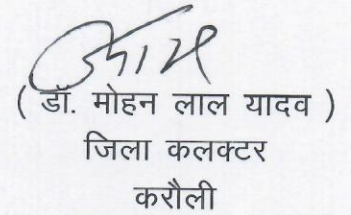 ( डॉ. मोहन लाल यादव )
जिला कलक्टर
करौली